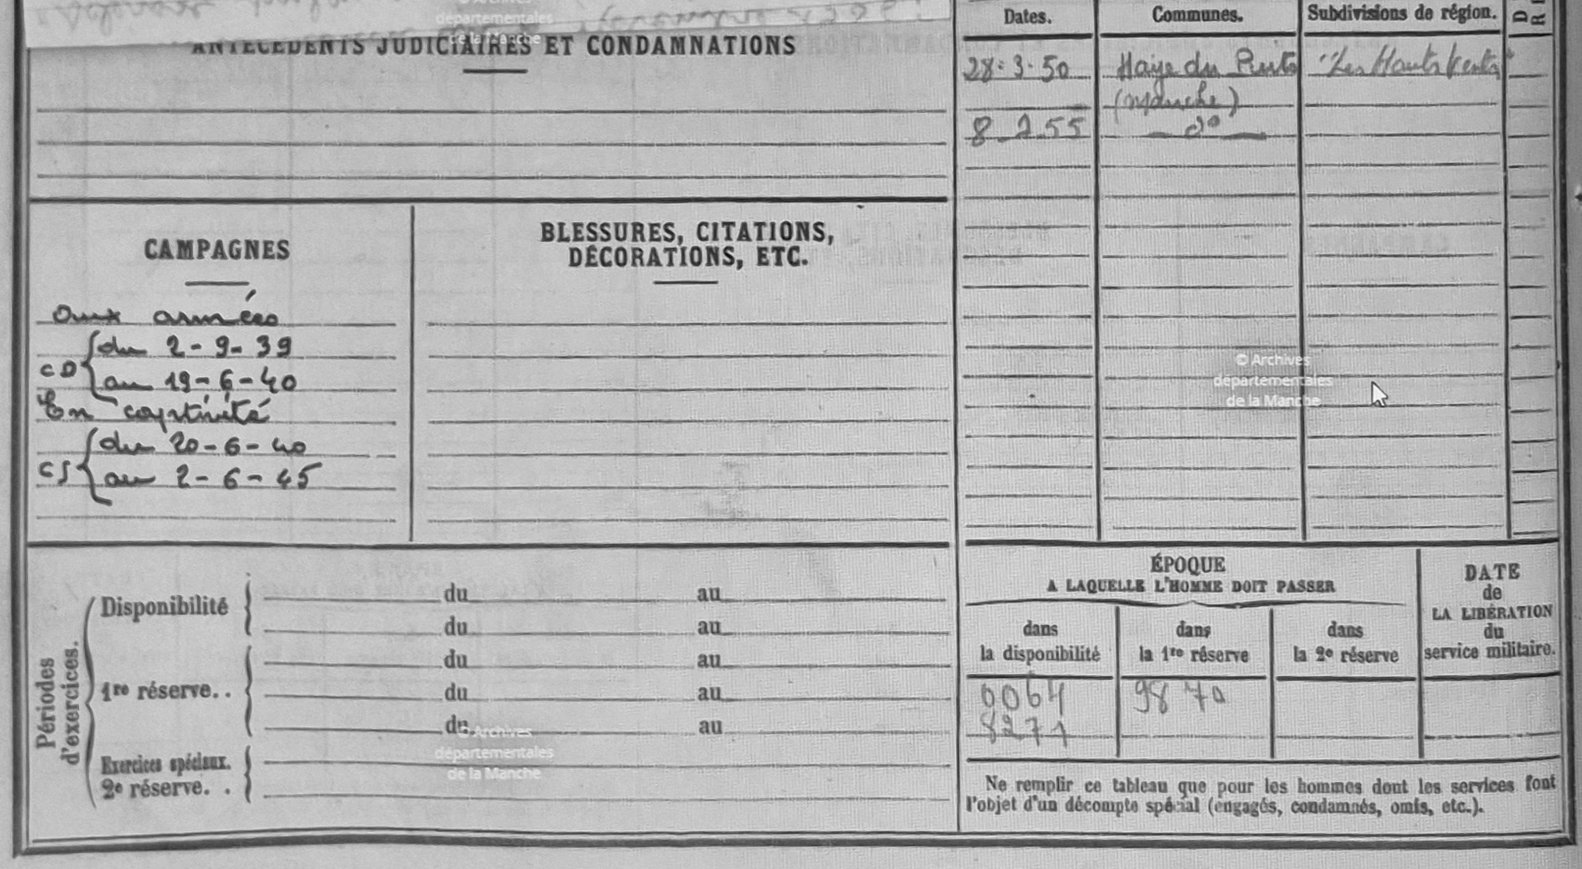 ANTÉCÉDENTS JUDICIAIRES ET CONDAMNATIONS
CAMPAGNES
Aux armées
CD du 2-9-39
au 19-6-40
En captivité
CS du 20-6-40
au 2-6-45
BLESSURES, CITATIONS,
DÉCORATIONS, ETC.
Périodes
d'exercices.
Disponibilité
du au
du au
1re réserve. .
du au
du au
du au
Exercices spéciaux.
2e réserve. .
Dates. Communes. Subdivisions de région. D
R
28-3-50 Haye du Puits "Les Hauts Vents"
(Manche)
8 2 55 do
ÉPOQUE
A LAQUELLE L'HOMME DOIT PASSER
dans
la disponibilité
dans
la 1re réserve
dans
la 2e réserve
DATE
de
LA LIBÉRATION
du
service militaire.
0064 9870
8271
Ne remplir ce tableau que pour les hommes dont les services font
l'objet d'un décompte spécial (engagés, condamnés, omis, etc.).
départementales
de la Manche
© Archives
départementales
de la Manche
© Archives
départementales
de la Manche